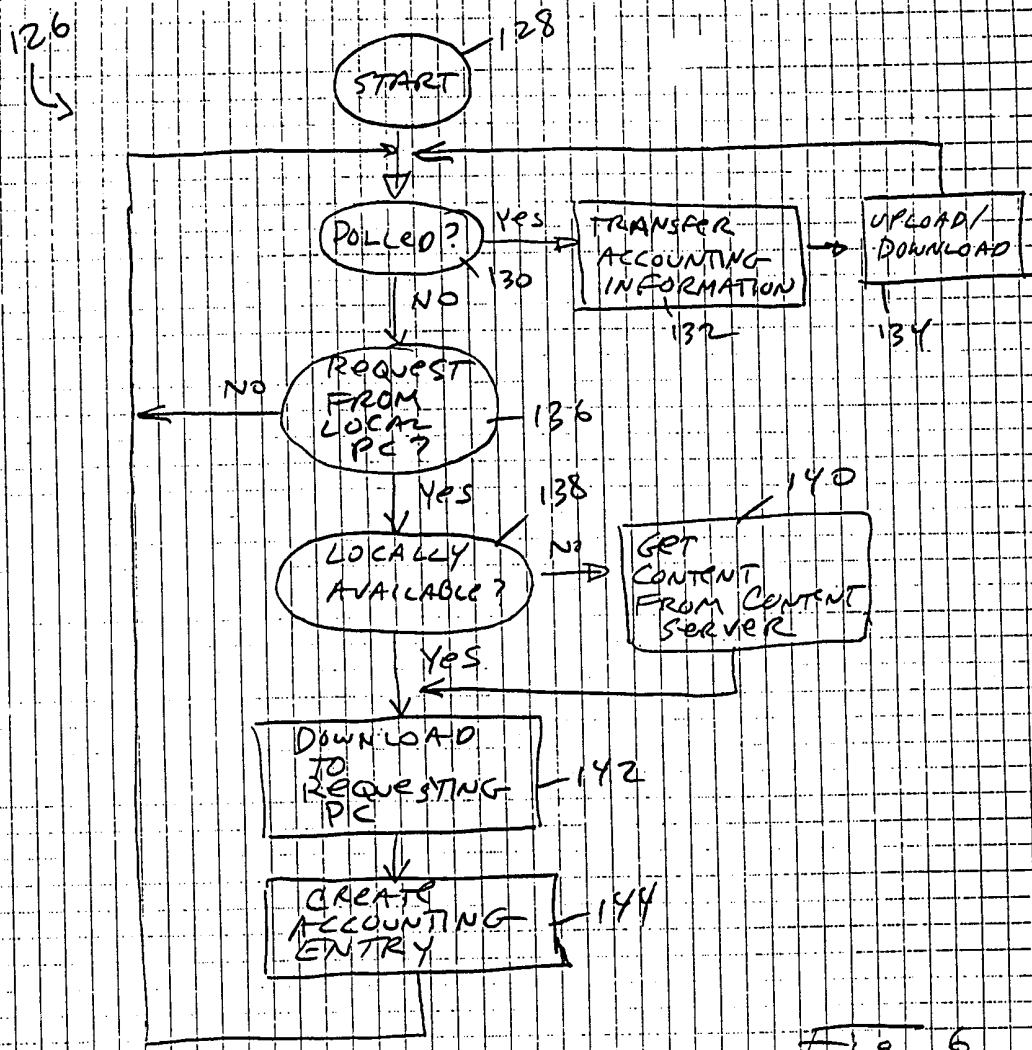 126
128
START
POLLED?
Yes
130
NO
TRANSFER
ACCOUNTING
INFORMATION
132
UPLOAD/
DOWNLOAD
134
REQUEST
FROM
LOCAL
PC?
NO
136
Yes
138
LOCALLY
AVAILABLE?
NO
140
GET
CONTENT
FROM CONTENT
SERVER
Yes
DOWNLOAD
TO
REQUESTING
PC
142
CREATE
ACCOUNTING
ENTRY
144
Fig 6